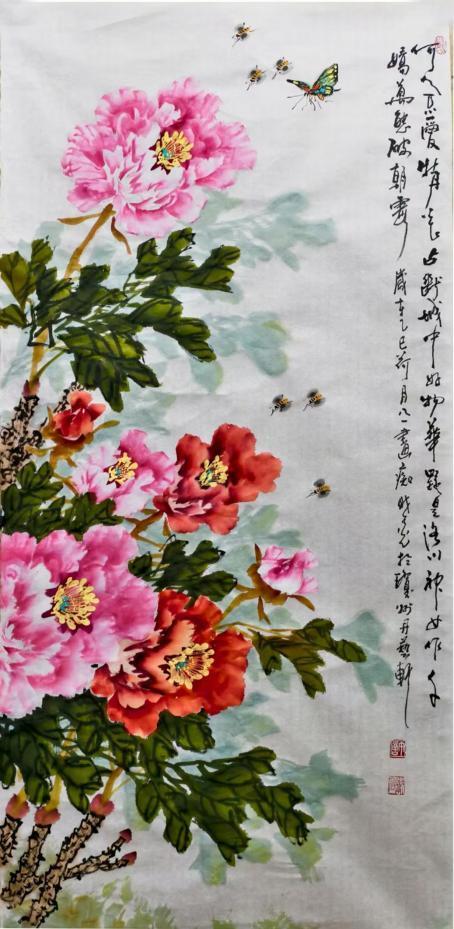 何人不愛牡丹花占斷城中好物華疑是洛川神女作千
嬌萬態破朝霞 歲在乙巳荷月八一畫痴於瓊州丹藝軒